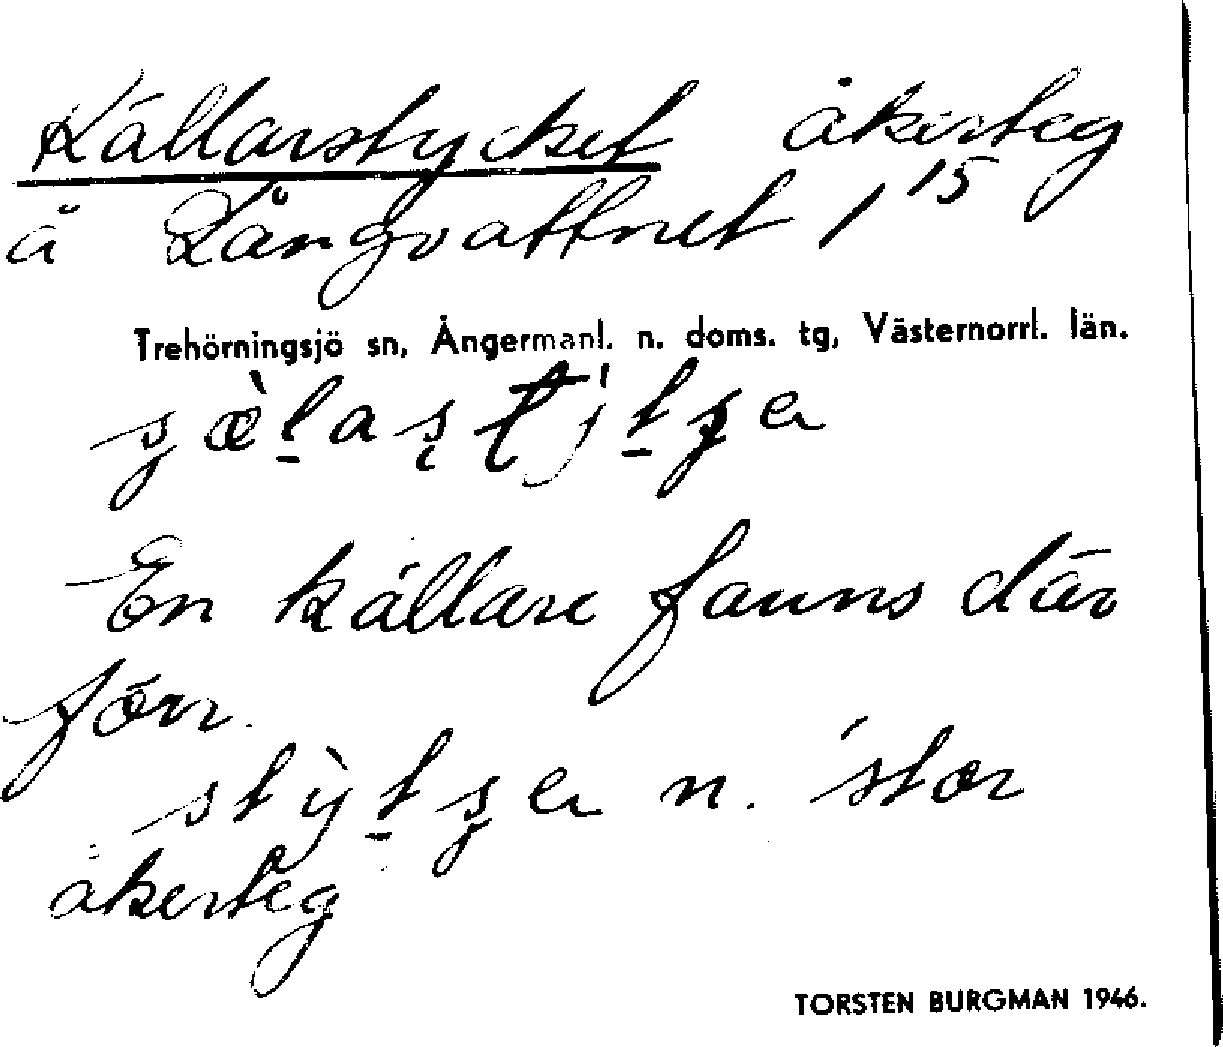 Källarstycket åkerteg
å Långvattnet 1 15
Trehörningsjö sn, Ångermanl. n. doms. tg, Västernorrl. län.
En källare fanns där
förr.
n. 'stor
åkerteg
TORSTEN BURGMAN 1946.